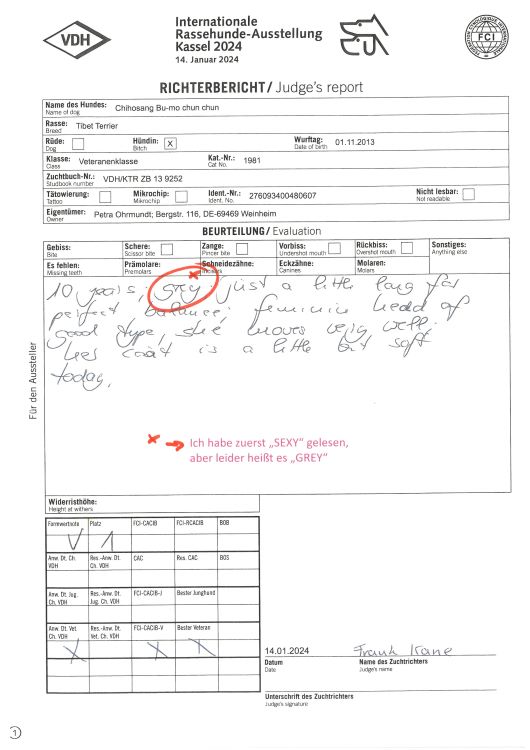 VDH
Internationale
Rassehunde-Ausstellung
Kassel 2024
14. Januar 2024
FCI
RICHTERBERICHT / Judge's report
Name des Hundes: Chihosang Bu-mo chun chun
Name of dog
Rasse: Tibet Terrier
Breed
Rüde: Hündin: X Wurftag: 01.11.2013
Dog Bitch Date of birth
Klasse: Veteranenklasse Kat.-Nr.: 1981
Class Cat No.
Zuchtbuch-Nr.: VDH/KTR ZB 13 9252
Studbook number
Tätowierung: Mikrochip: Ident.-Nr.: 276093400480607 Nicht lesbar:
Tattoo Mikrochip Ident. No. Not readable
Eigentümer: Petra Ohrmundt; Bergstr. 116, DE-69469 Weinheim
Owner
BEURTEILUNG / Evaluation
Gebiss: Schere: Zange: Vorbiss: Rückbiss: Sonstiges:
Bite Scissor bite Pincer bite Undershot mouth Overshot mouth Anything else
Es fehlen: Prämolare: Schneidezähne: Eckzähne: Molaren:
Missing teeth Premolars Incisors Canines Molars
10 years, grey, just a little long for
perfect balance, feminin head of
good type, she moves very well.
Her coat is a little bit soft
today,
Für den Aussteller
Ich habe zuerst „SEXY" gelesen,
aber leider heißt es „GREY"
Widerristhöhe:
Height at withers
Formwertnote Platz FCI-CACIB FCI-RCACIB BOB
V 1
Anw. Dt. Ch. VDH Res.-Anw. Dt. Ch. VDH CAC Res. CAC BOS
Anw. Dt. Jug. Ch. VDH Res.-Anw. Dt. Jug. Ch. VDH FCI-CACIB-J Bester Junghund
Anw. Dt. Vet. Ch. VDH Res.-Anw. Dt. Vet. Ch. VDH FCI-CACIB-V Bester Veteran
X X X
14.01.2024 Frank Kane
Datum Name des Zuchtrichters
Date Judge's name
Unterschrift des Zuchtrichters
Judge's signature
1